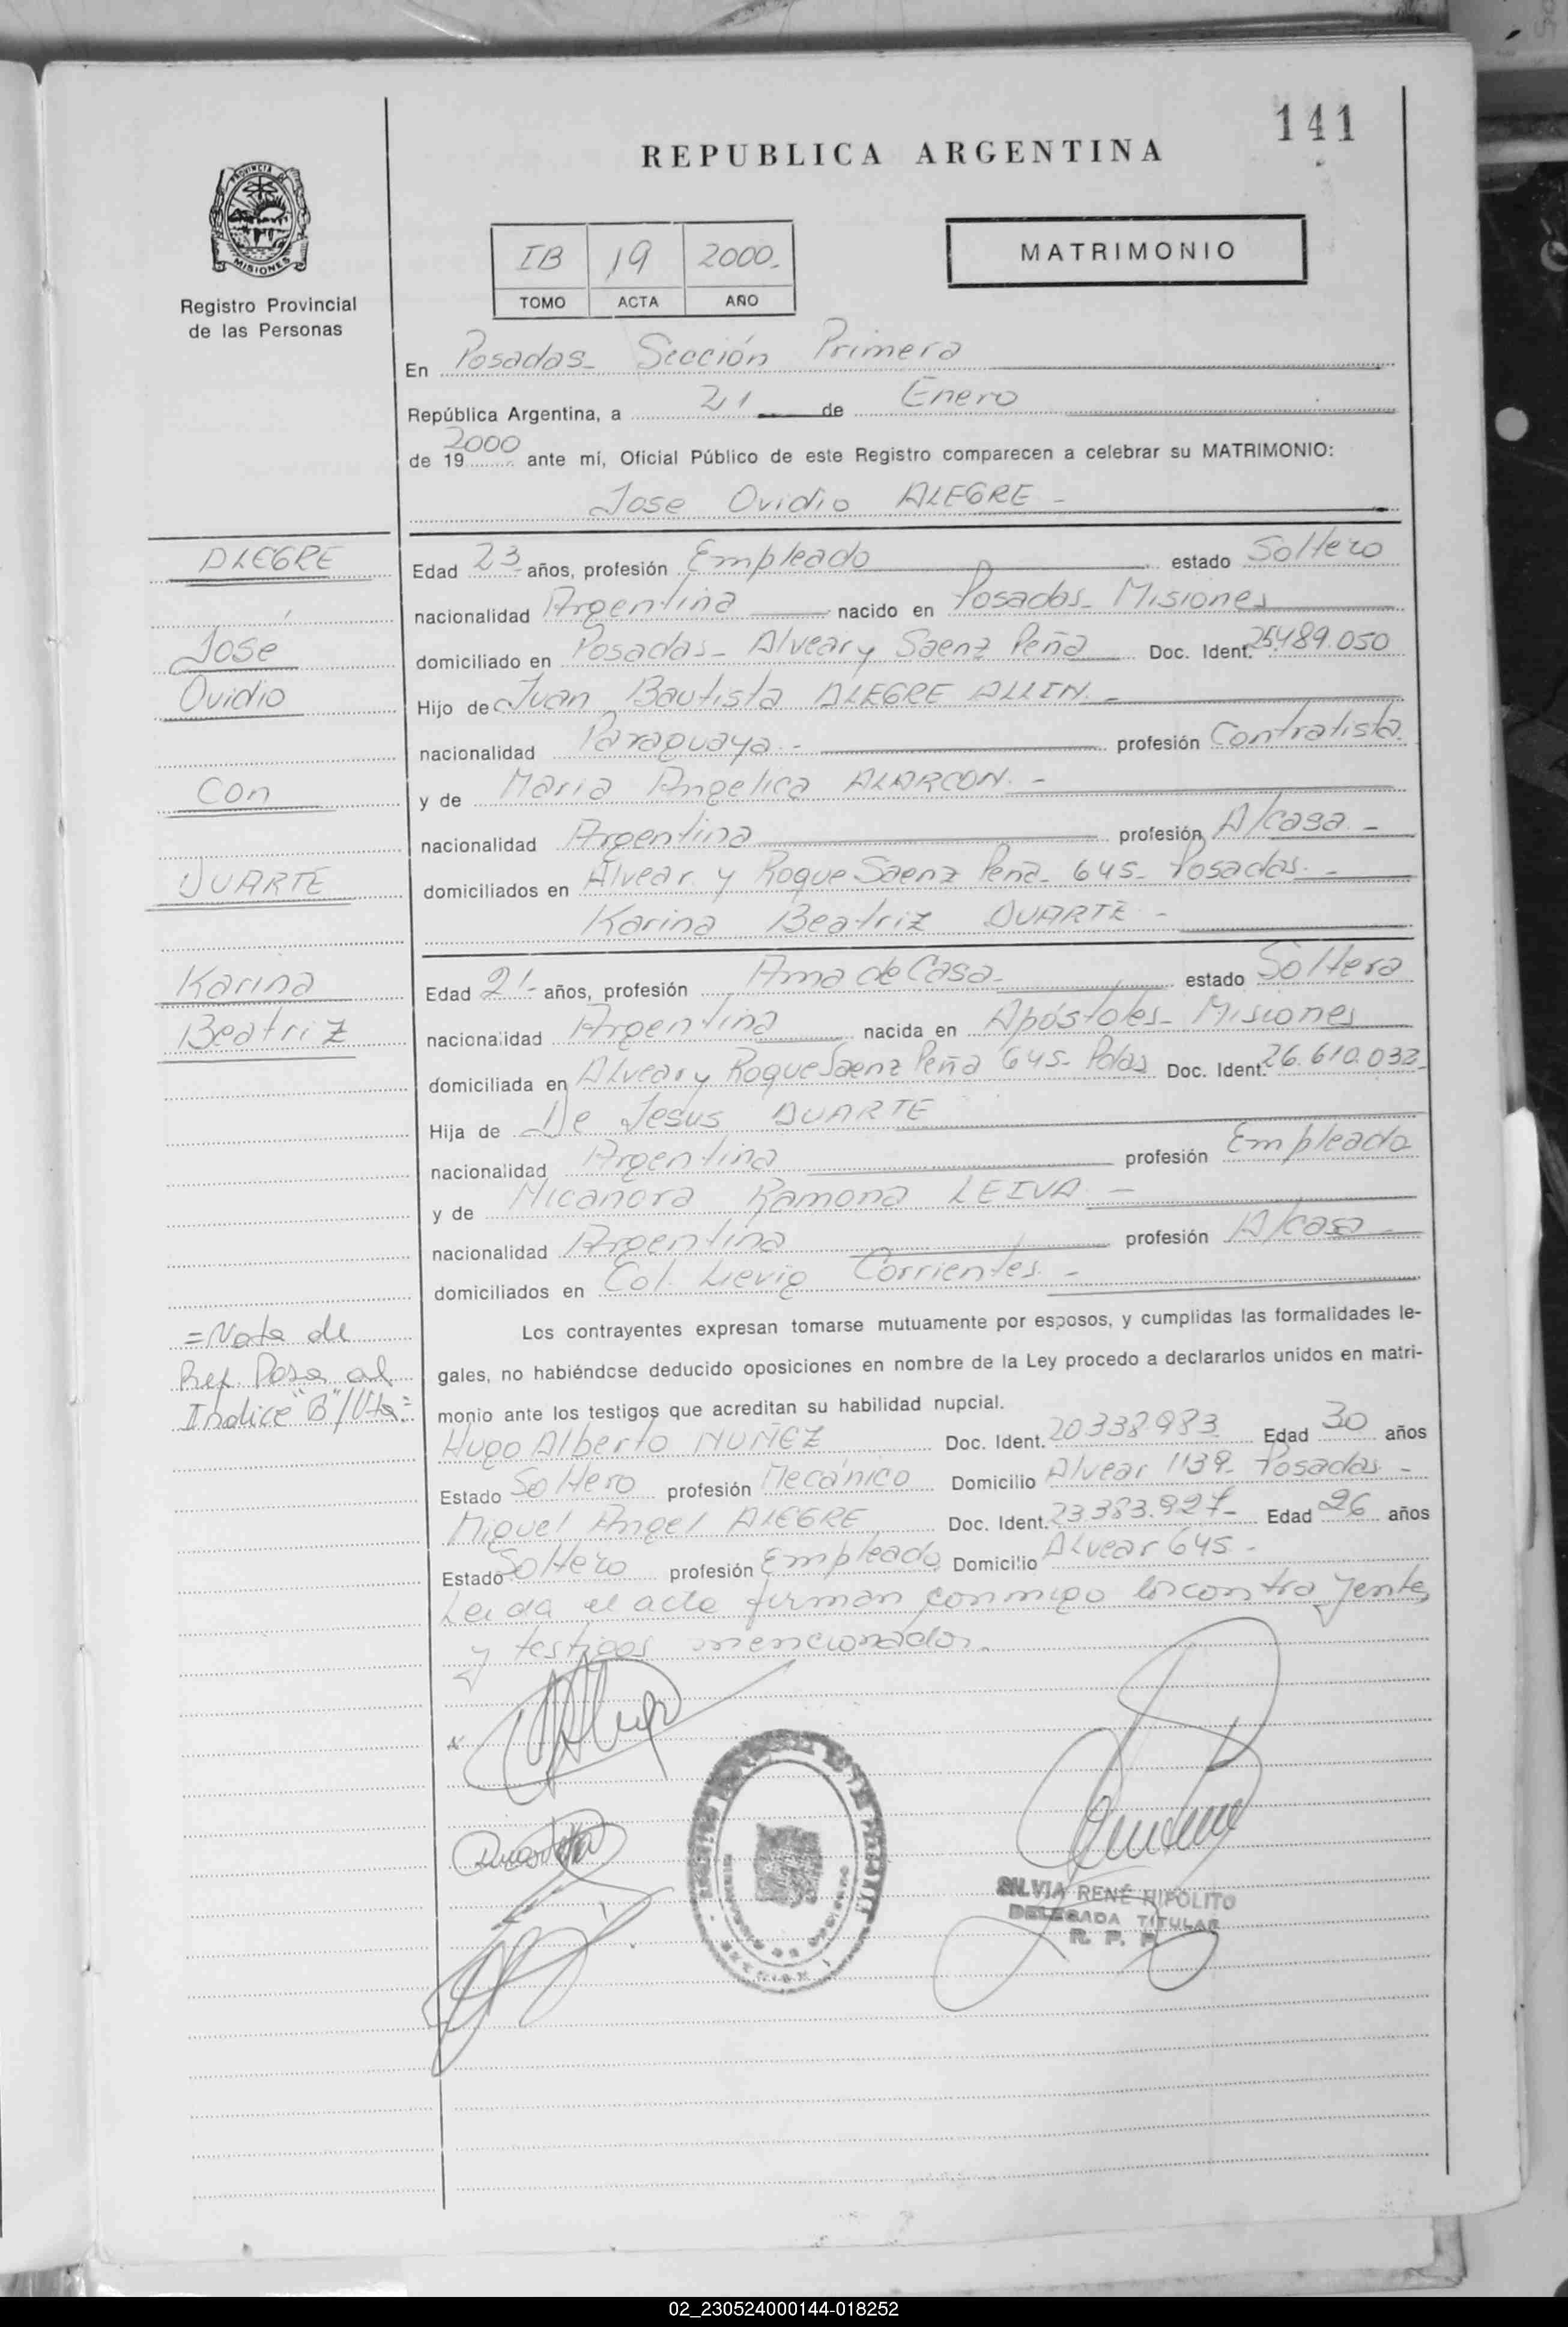 141
REPUBLICA ARGENTINA
PROVINCIA DE
MISIONES
Registro Provincial
de las Personas
IB 19 2000.
TOMO ACTA AÑO
MATRIMONIO
En Posadas- Sección Primera
República Argentina, a 21 de Enero
de 19 2000 ante mí, Oficial Público de este Registro comparecen a celebrar su MATRIMONIO:
Jose Ovidio ALEGRE -
ALEGRE
Jose
Ovidio
Con
DUARTE
Karina
Beatriz
Edad 23- años, profesión Empleado estado Soltero
nacionalidad Argentina nacido en Posadas- Misiones
domiciliado en Posadas- Alvear y Saenz Peña Doc. Ident. 25.489.050
Hijo de Juan Bautista ALEGRE ALLEN. -
nacionalidad Paraguaya - profesión Contratista.
y de Maria Angelica ALARCON. -
nacionalidad Argentina profesión A/casa -
domiciliados en Alvear y Roque Saenz Peña- 645- Posadas. -
Karina Beatriz DUARTE -
Edad 21- años, profesión Ama de Casa- estado Soltera
nacionalidad Argentina nacida en Apóstoles- Misiones
domiciliada en Alvear y Roque Saenz Peña 645- Pdas Doc. Ident. 26.610.032
Hija de De Jesus DUARTE
nacionalidad Argentina profesión Empleado
y de Nicanora Ramona LEIVA -
nacionalidad Argentina profesión A/casa -
domiciliados en Col. Lievig Corrientes. -
=Nota de
Ref. Pasa al
Indice "B"/Vta=
Los contrayentes expresan tomarse mutuamente por esposos, y cumplidas las formalidades le-
gales, no habiéndose deducido oposiciones en nombre de la Ley procedo a declararlos unidos en matri-
monio ante los testigos que acreditan su habilidad nupcial.
Hugo Alberto NUÑEZ Doc. Ident. 20338983 Edad 30 años
Estado Soltero profesión Mecánico Domicilio Alvear 1139- Posadas -
Miguel Angel ALEGRE Doc. Ident. 23383.927- Edad 26 años
Estado Soltero profesión Empleado Domicilio Alvear 645 -
Leida el acta firman conmigo los contrayentes
y testigos mencionados.
SILVIA RENÉ HIPOLITO
DELEGADA TITULAR
R. P. P.
02_230524000144-018252